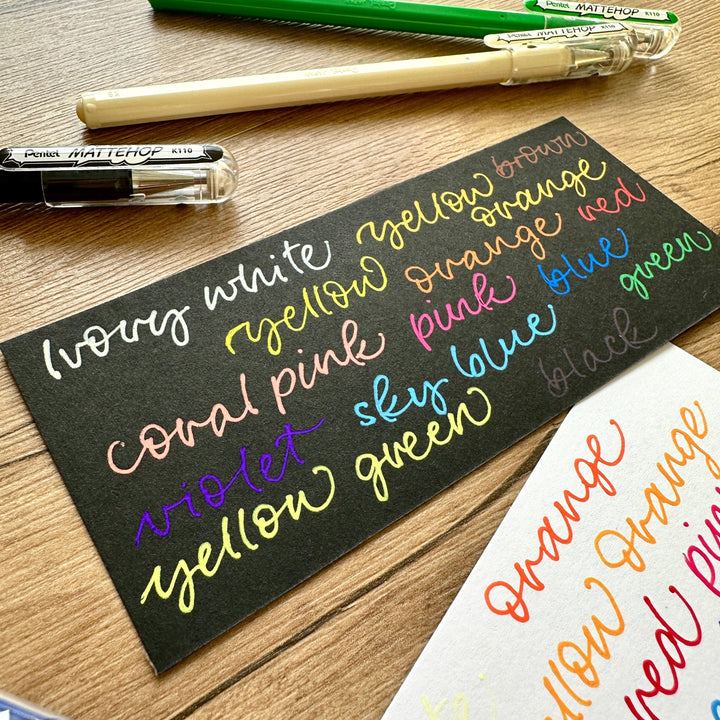 Pentel MATTEHOP K110
Pentel MATTEHOP K110
Pentel MATTEHOP K110
Ivory white yellow orange brown
yellow orange red
coral pink pink blue
violet sky blue green
yellow green black
orange
yellow orange
red pin